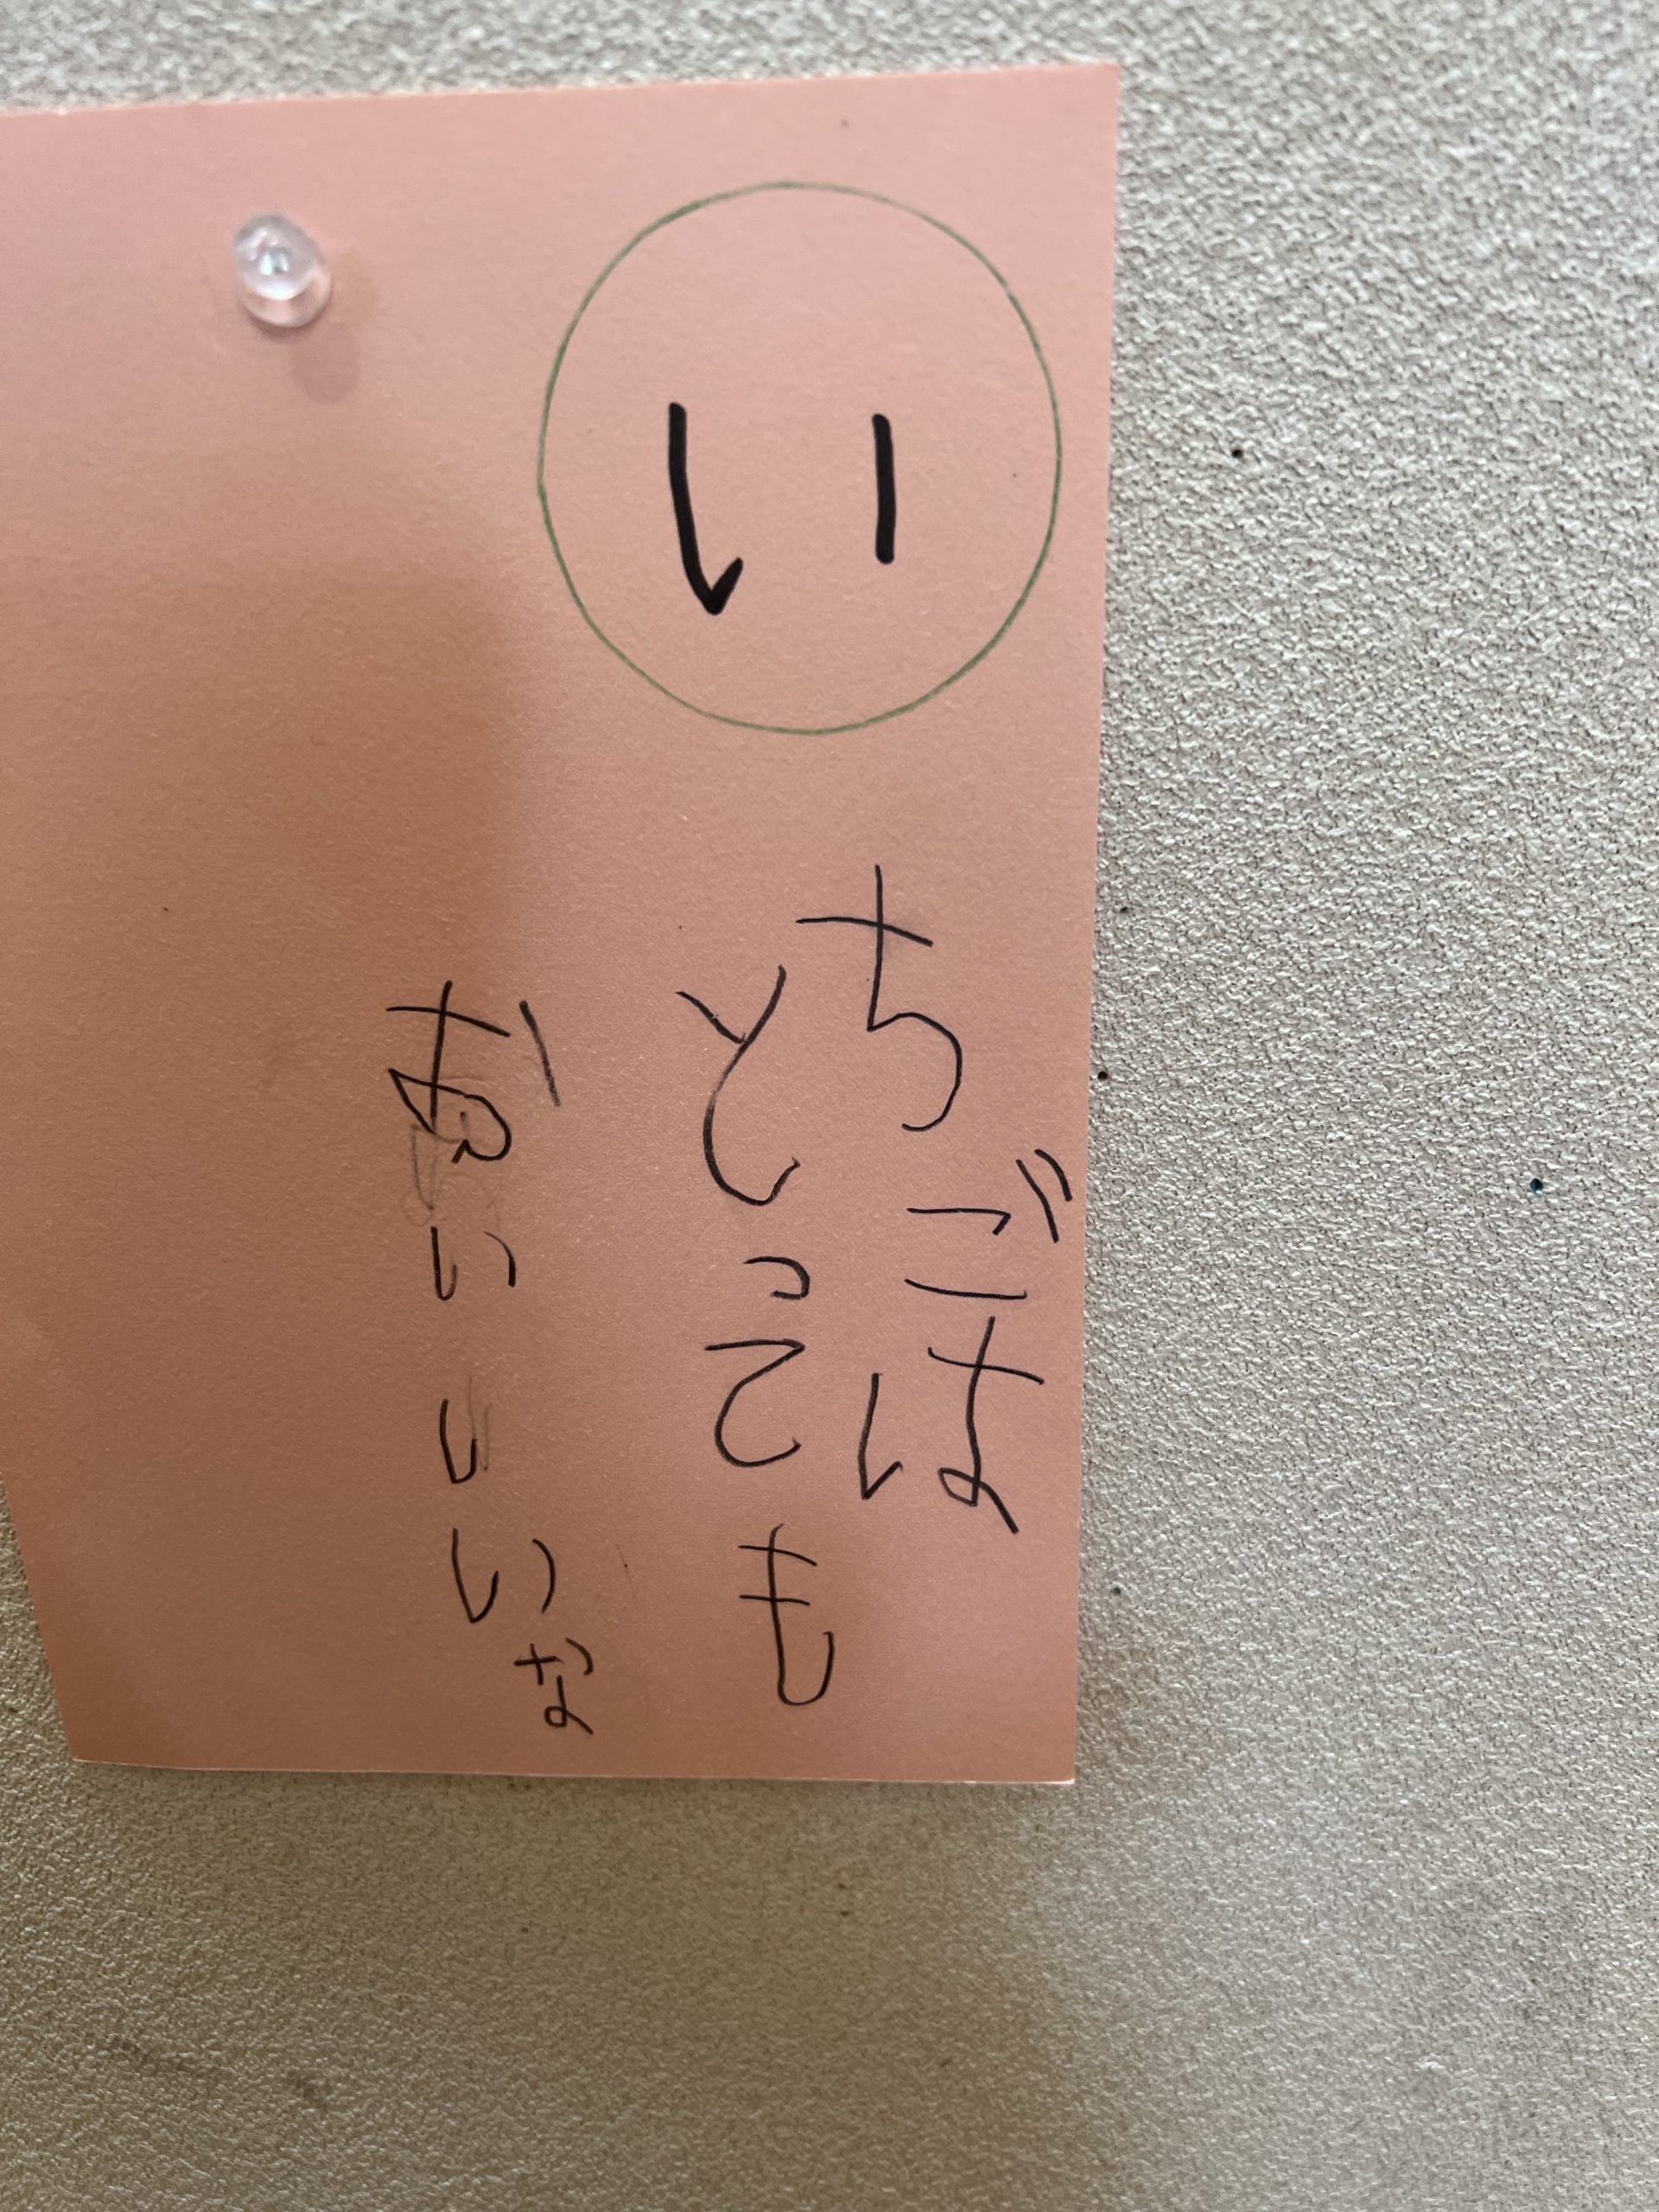 い
ちごは
とっても
おいしいな